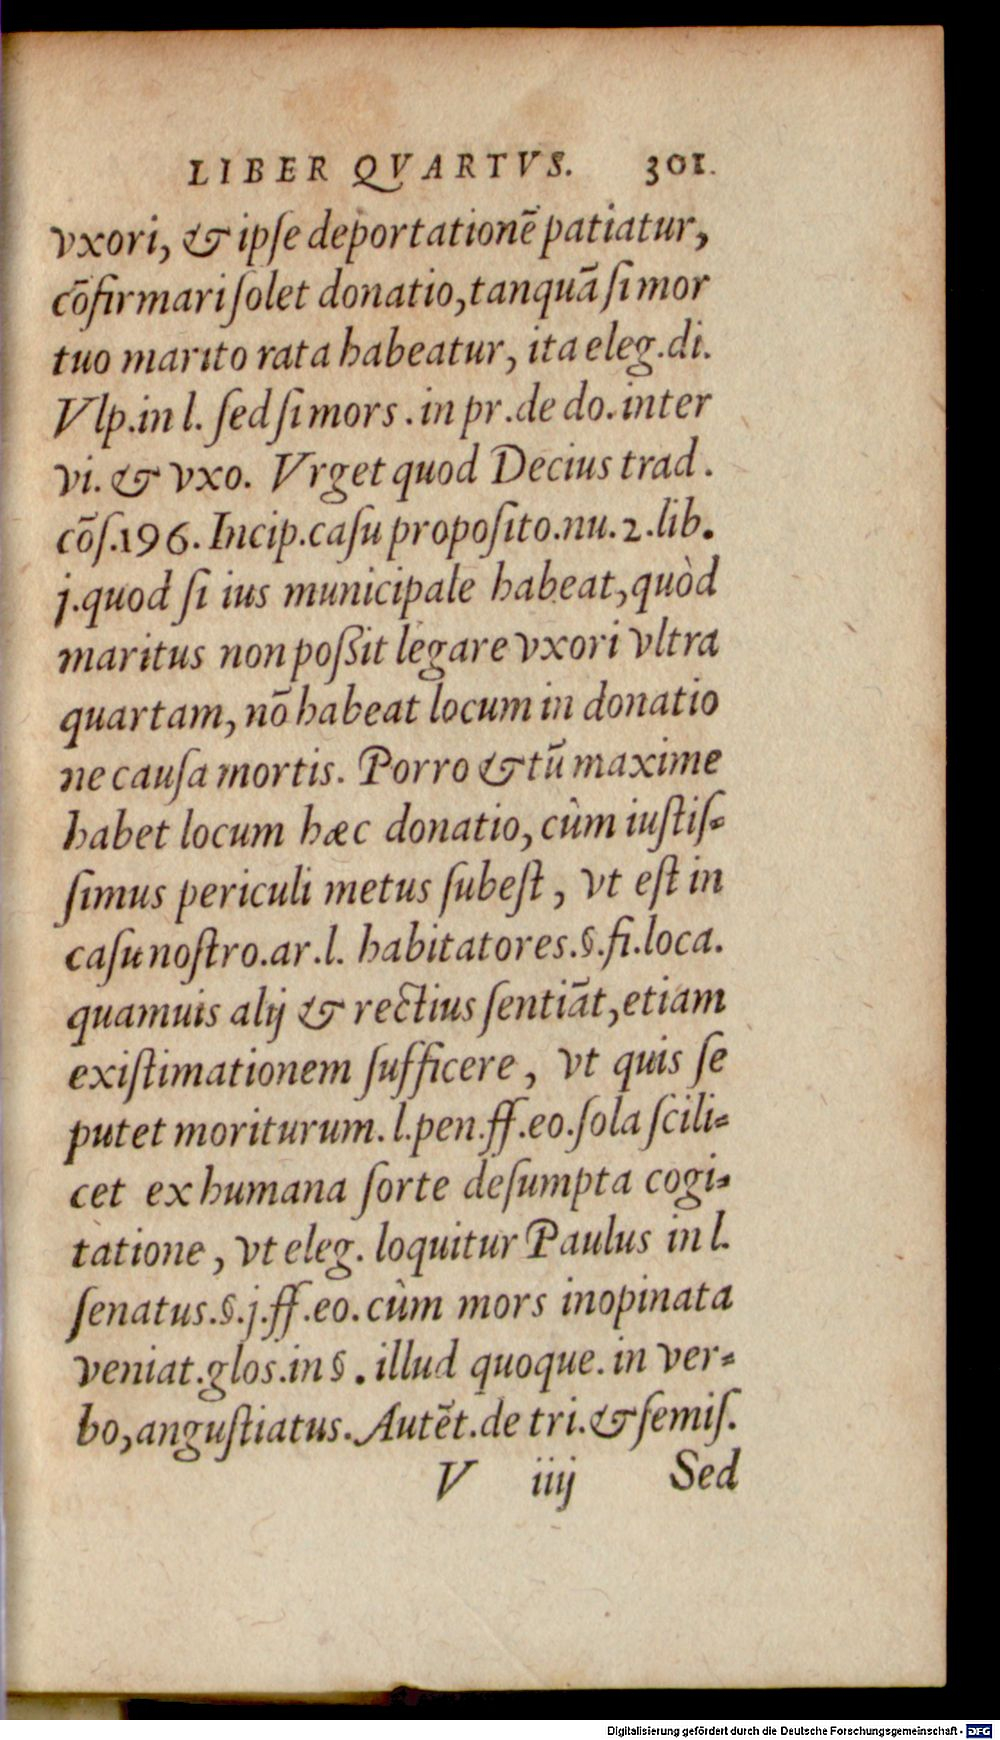 LIBER QVARTVS. 301.
vxori, & ipſe deportationē patiatur,
cōfirmari ſolet donatio, tanquā ſi mor
tuo marito rata habeatur, ita eleg. di.
Vlp. in l. ſed ſi mors. in pr. de do. inter
vi. & vxo. Vrget quod Decius trad.
cōſ. 196. Incip. caſu propoſito. nu. 2. lib.
j. quod ſi ius municipale habeat, quòd
maritus non poßit legare vxori vltra
quartam, nō habeat locum in donatio
ne cauſa mortis. Porro & tū maxime
habet locum hæc donatio, cùm iuſtiſ-
ſimus periculi metus ſubeſt, vt eſt in
caſu noſtro. ar. l. habitatores. §. fi. loca.
quamuis alij & rectius ſentiāt, etiam
exiſtimationem ſufficere, vt quis ſe
putet moriturum. l. pen. ff. eo. ſola ſcili-
cet ex humana ſorte deſumpta cogi-
tatione, vt eleg. loquitur Paulus in l.
ſenatus. §. j. ff. eo. cùm mors inopinata
veniat. glos. in §. illud quoque. in ver-
bo, anguſtiatus. Autēt. de tri. & ſemiſ.
V iiij Sed
Digitalisierung gefördert durch die Deutsche Forschungsgemeinschaft - DFG